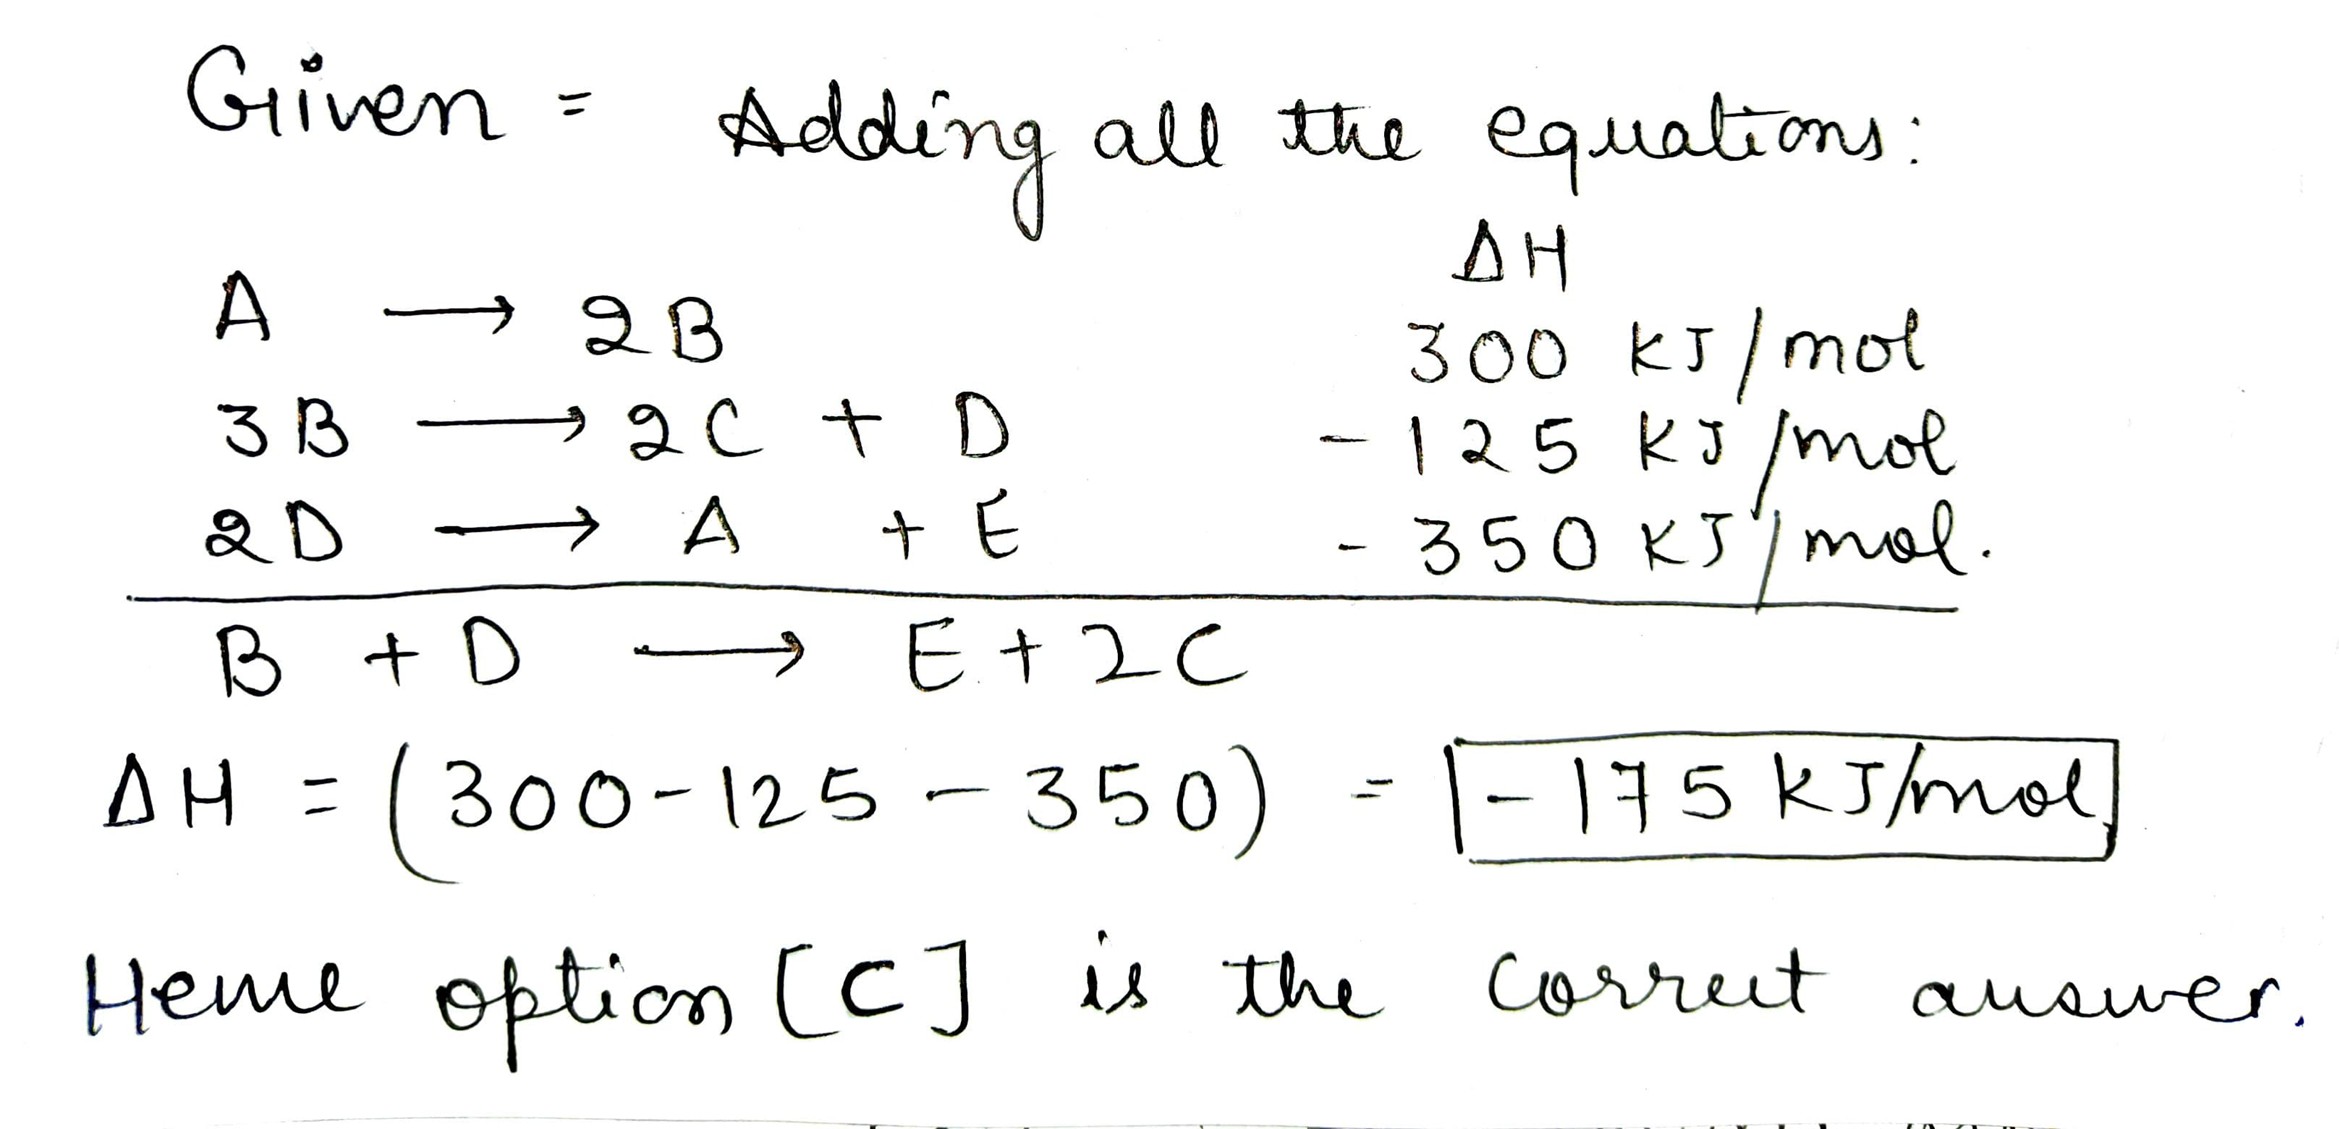 Given = Adding all the equations:
ΔH
A → 2B 300 KJ/mol
3B → 2C + D -125 KJ/mol
2D → A + E -350 KJ/mol.
B + D → E + 2C
ΔH = (300-125-350) = -175 KJ/mol
Hence option [C] is the correct answer.